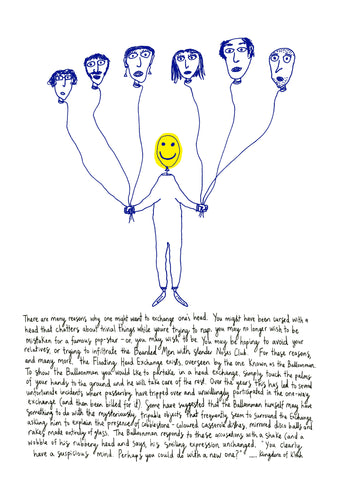 There are many reasons why one might want to exchange one's head. You might have been cursed with a
head that chatters about trivial things while you're trying to nap, you may no longer wish to be
mistaken for a famous pop-star - or you may wish to be. You may be hoping to avoid your
relatives, or trying to infiltrate the Bearded Men with Slender Noses Club. For these reasons,
and many more, the Floating Head Exchange exists, overseen by the one known as the Balloonman.
To show the Balloonman you would like to partake in a head exchange, simply touch the palms
of your hands to the ground and he will take care of the rest. Over the years this has led to several
unfortunate incidents where passersby have tripped over and unwillingly participated in the one-way
exchange (and then been billed for it). Some have suggested that the Balloonman himself may have
something to do with the mysteriously tripable objects that frequently seem to surround the Exchange,
asking him to explain the presence of cobblestone-coloured casserole dishes, mirrored disco balls and
rakes made entirely of glass. The Balloonman responds to these accusations with a shake (and a
wobble) of his rubbery head and says, his smiling expression unchanged, "You clearly
have a suspicious mind. Perhaps you could do with a new one?" Kingdom of